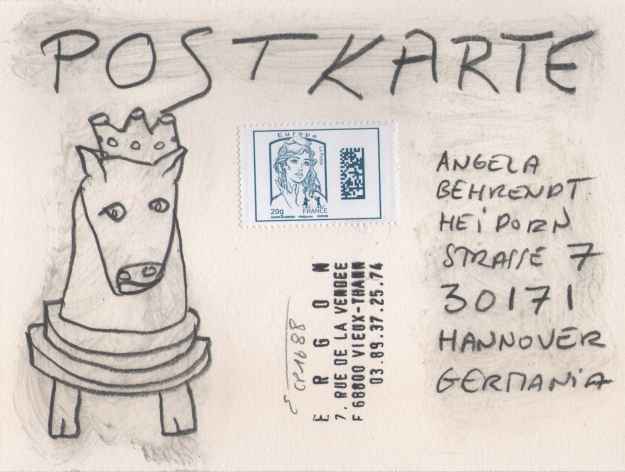 POSTKARTE
Europa
20g
FRANCE
ANGELA
BEHRENDT
HEIDORN
STRASSE 7
30171
HANNOVER
GERMANIA
ERGON
7, RUE DE LA VENDEE
F 68800 VIEUX-THANN
03.89.37.25.74
CP1688